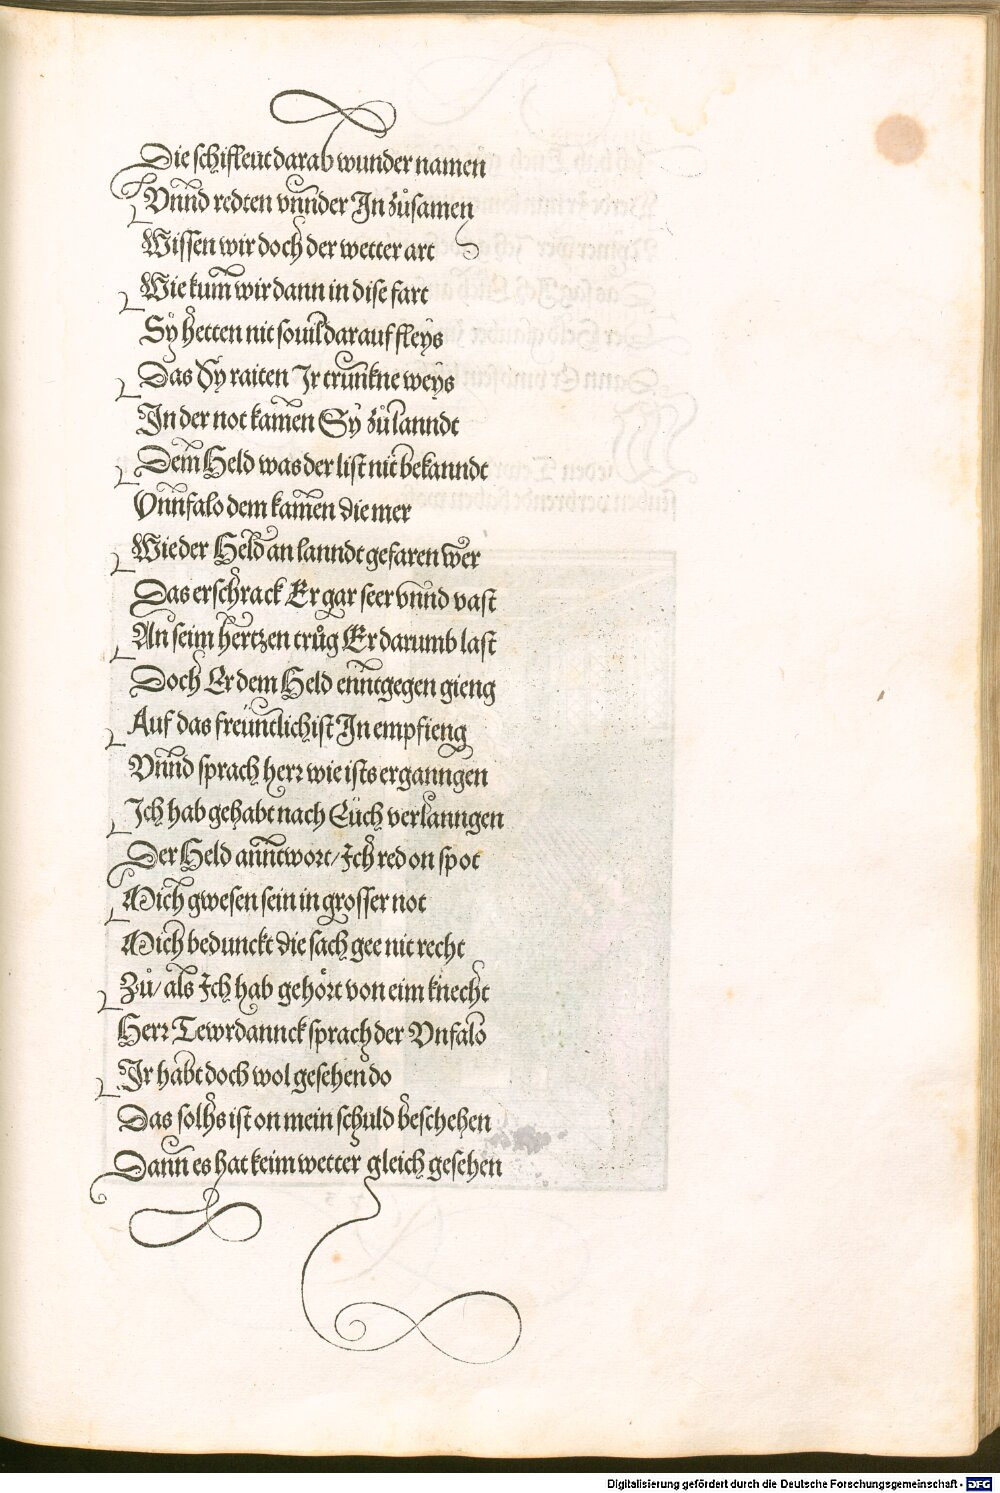 Die schifleut darab wunder namen
Vnnd redten vnnder In zůsamen
Wissen wir doch der wetter art
Wie kum̄ wir dann in dise fart
Sÿ hetten nit souil darauf fleÿs
Das Sÿ raiten Ir trunkne weÿs
In der not kamen Sÿ zů lanndt
Dem Held was der list nit bekanndt
Vnnfalo dem kamen die mer
Wie der Held an lanndt gefaren wer
Das erschrack Er gar seer vnnd vast
An seim hertzen trůg Er darumb last
Doch Er dem Held enntgegen gieng
Auf das freüntlichist In empfieng
Vnnd sprach herr wie ists erganngen
Ich hab gehabt nach Eüch verlanngen
Der Held anntwort / Ich red on spot
Mich gwesen sein in grosser not
Mich bedunckt die sach gee nit recht
Zů / als Ich hab gehört von eim knecht
Herr Tewrdannck sprach der Vnfalo
Ir habt doch wol gesehen do
Das solhs ist on mein schuld beschehen
Dann es hat keim wetter gleich gesehen
Digitalisierung gefördert durch die Deutsche Forschungsgemeinschaft - DFG